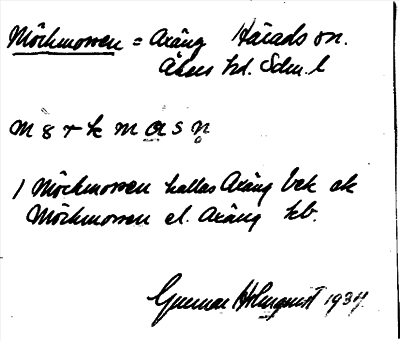 Mörkmossen = Axäng Härads sn.
Åkers hd. Sdm. l
m 8 r k m a s n
1 Mörkmossen kallas Axäng bek ek
Mörkmossen el. Axäng kb.
Gunnar Holmquist 1934